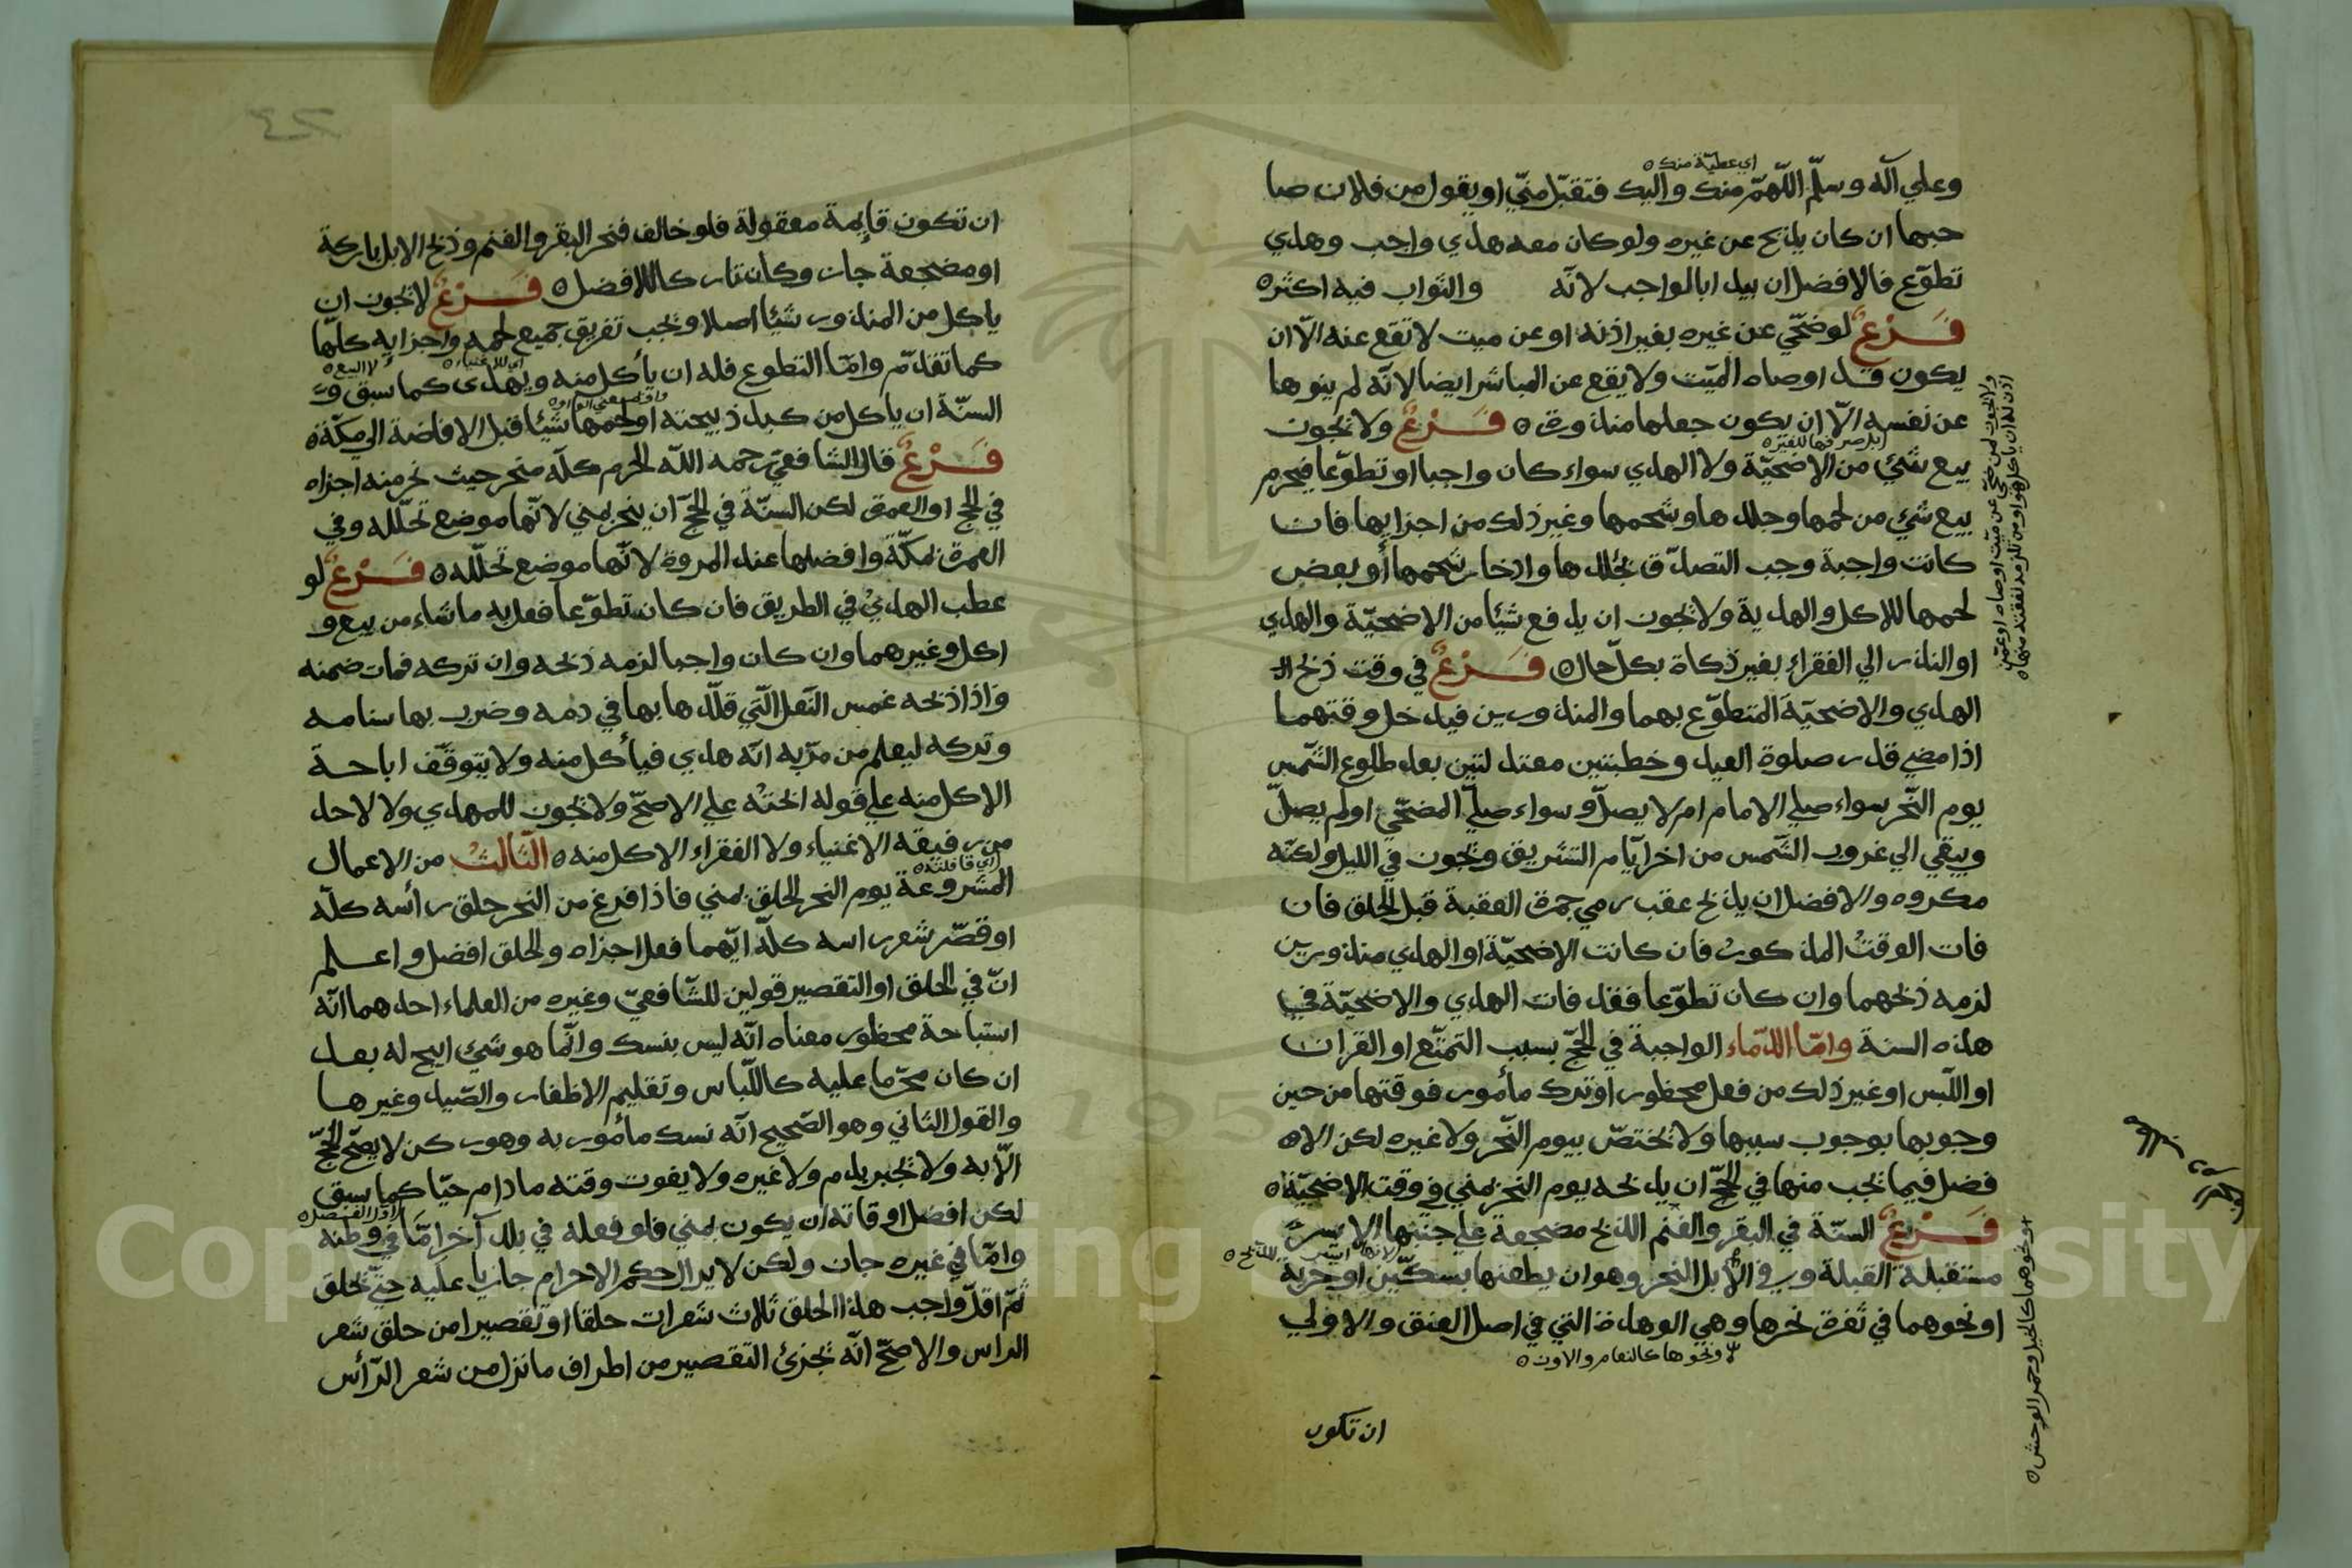 اي عطيّة منك
وعلي آله وسلّم اللّهمّ منك واليك فتقبّل منّي او يقول من فلان صا
حبها ان كان يذبح عن غيره ولو كان معه هدي واجب وهدي
تطوّع فالافضل ان يبدا بالواجب لانّه والثواب فيه اكثر
فَرْعٌ لو ضحّي عن غيره بغير اذنه او عن ميت لا تقع عنه الّا ان
يكون قد اوصاه الميّت ولا يقع عن المباشر ايضا لانّه لم ينوها
عن نفسه الّا ان يكون جعلها منذورة فَرْعٌ ولا يجوز
بيع شيْ من الاضحيّة ولا الهدي سواء كان واجبا او تطوّعا فيحرم
بيع شيْ من لحمها وجلدها وشحمها وغير ذلك من اجزايها فان
كانت واجبة وجب التصدّق بجلدها وادخار شحمها أو بعض
لحمها للاكل والهدية ولا يجوز ان يدفع شيًا من الاضحيّة والهدي
او النذر الي الفقراء بغير ذكاة بكلّ حال فَرْعٌ في وقت ذبح
الهدي والاضحيّة المتطوّع بهما والمنذورين فيدخل وقتهما
اذا مضي قدر صلوة العيد وخطبتين معتدلتين بعد طلوع الشّمس
يوم النّحر سواء صلي الامام ام لا يصلّ وسواء صليّ المضحّي او لم يصلّ
ويبقي الي غروب الشّمس من اخر ايّام التشريق ويجوز في الليل ولكنّه
مكروه والافضل ان يذبح عقب رمي جمرة العقبة قبل الحلق فان
فات الوقتُ المذكورُ فان كانت الاضحيّة او الهدي منذورين
لزمه ذبحهما وان كان تطوّعا فقد فات الهدي والاضحيّة في
هذه السنة وامّا الدّماء الواجبة في الحجّ بسبب التمتّع او القران
او اللّبس او غير ذلك من فعل محظور او ترك مأمور فوقتها من حين
وجوبها بوجوب سببها ولا تختصّ بيوم النّحر ولا غيره لكن الا
فضل فيما يجب منها في الحجّ ان يذبحه يوم النحر بمني في وقت الاضحيّة
فَرْعٌ السنّة في البقر والغنم الذبح مضجعة علي جنبها الايسر
مستقبلة القبلة وفي الابل النحر وهو ان يطعنها بسكّين او حربة
او نحوهما في ثغرة نحرها وهي الوهدة التي في اصل العنق والاولي
ونحوها كالنعام والاوز
ولا يجوز لمن ضحّي عن ميّت اوصاه او عمّن
اذن له ان ياكل هو او من تلزمه نفقته منها
ونحوهما كالخيل وحمر الوحش
ان تكون
ان تكون قايمة معقولة فلو خالف فنحر البقر والغنم وذبح الابل باركة
او مضجعة جاز وكان تاركا للافضل فَرْعٌ لا يجوز ان
ياكل من المنذور شيًا اصلا ويجب تفريق جميع لحمه واجزايه كلّها
اي للاغنياء لا البيع
كما تقدّم وامّا التطوع فله ان يأكل منه ويهدي كما سبق و
السنّة ان ياكل من كبد ذبيحته او لحمها شيًا قبل الافاضة الي مكّة
فَرْعٌ قال الشافعيّ رحمه اللّه الحرم كلّه منحر حيث نحر منه اجزاه
في الحج او العمرة لكن السنّة في الحجّ ان ينحر بمني لانّها موضع تحلّله وفي
العمرة بمكّة وافضلها عند المروة لانّها موضع تحلّله فَرْعٌ لو
عطب الهديُ في الطريق فان كان تطوّعا فعل به ما شاء من بيع و
اكل وغيرهما وان كان واجبا لزمه ذبحه وان تركه فمات ضمنه
واذا ذبحه غمس النّعل الّتي قلّدها بها في دمه وضرب بها سنامه
وتركه ليعلم من مرّ به انّه هدي فيأكل منه ولا يتوقّف اباحة
الاكل منه علي قوله ابحتُه علي الاصحّ ولا يجوز للمهدي ولا لاحد
من رفيقه الاغنياء ولا الفقراء الاكل منه الثّالثُ من الاعمال
اي قافلته
المشروعة يوم النحر الحلق بمني فاذا فرغ من النحر حلق رأسه كلّه
او قصّر شعر راسه كلّه ايّهما فعل اجزاه والحلق افضل واعلم
انّ في الحلق او التقصير قولين للشّافعيّ وغيره من العلماء احدهما انّه
استباحة محظور معناه انّه ليس بنسك وانّما هو شيْ ابيح له بعد
ان كان محرّما عليه كاللّباس وتقليم الاظفار والصّيد وغيرها
والقول الثاني وهو الصّحيح انّه نسك مأمور به وهو ركن لا يصحّ الحجّ
الّا به ولا يجبر بدم ولا غيره ولا يفوت وقته ما دام حيّا كما سبق
لكن افضل اوقاته ان يكون بمني فلو فعله في بلد آخر امّا في وطنه
وامّا في غيره جاز ولكن لا يزال حكم الاحرام جاريا عليه حتّي يحلق
ثمّ اقلّ واجب هذا الحلق ثلاث شعرات حلقا او تقصيرا من حلق شعر
الراس والاصحّ انّه يجزئ التقصير من اطراف ما نزل من شعر الرّأس